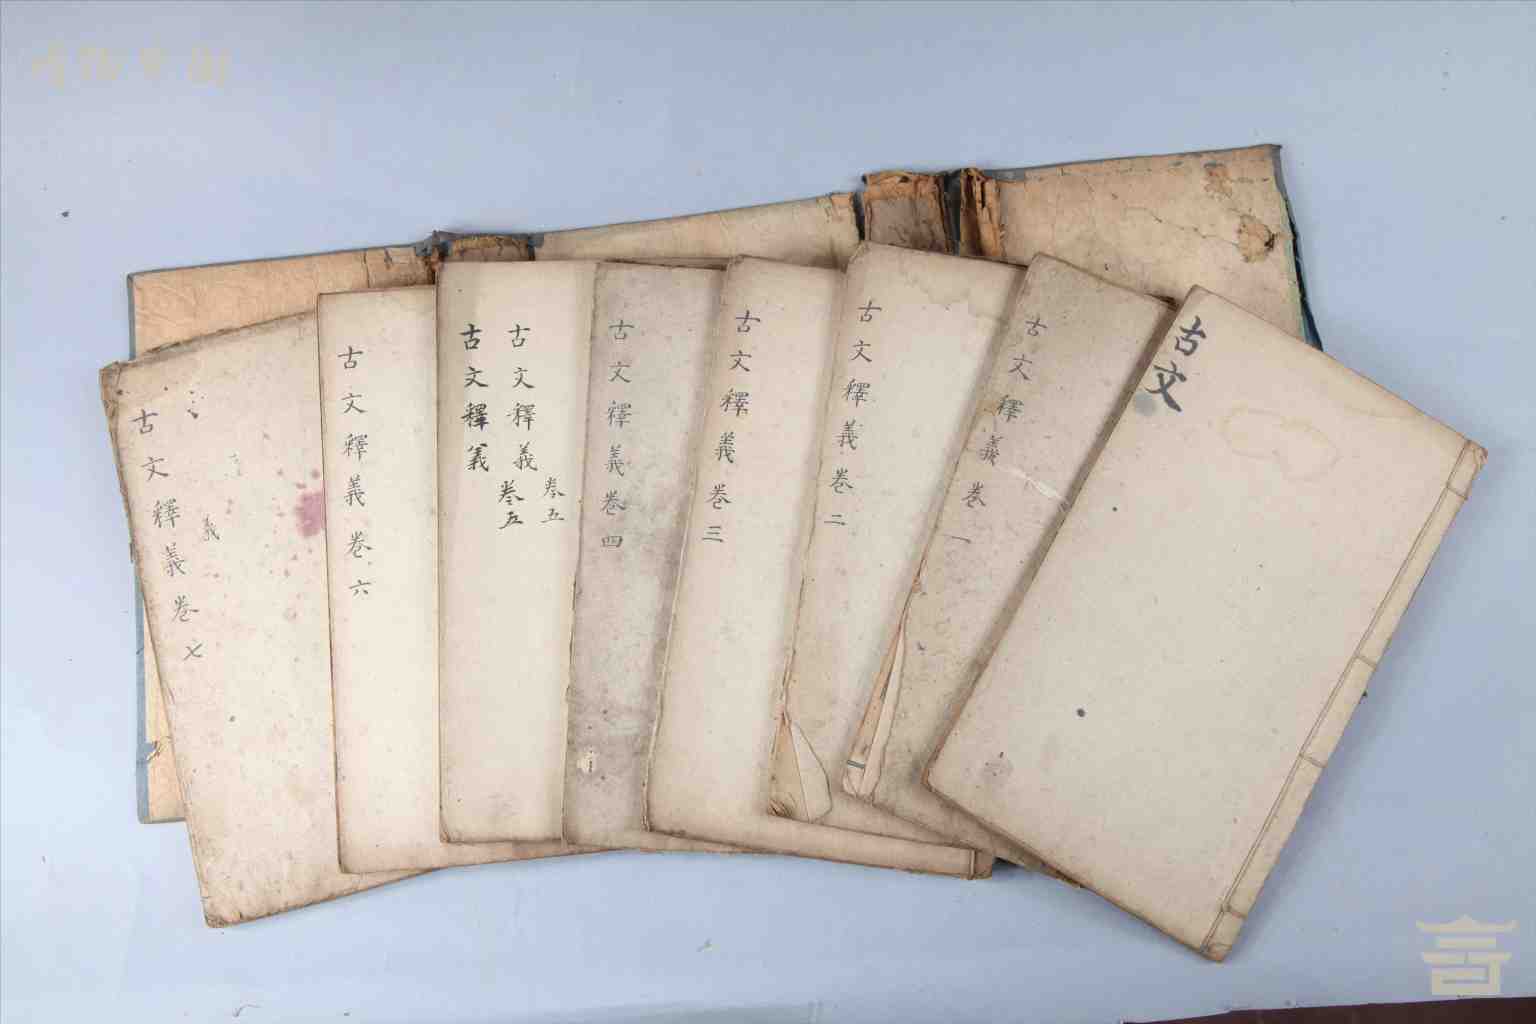 古文
古文釋義卷一
古文釋義卷二
古文釋義卷三
古文釋義卷四
古文釋義
卷五
古文釋義
卷五
古文釋義卷六
義
古文釋義卷七